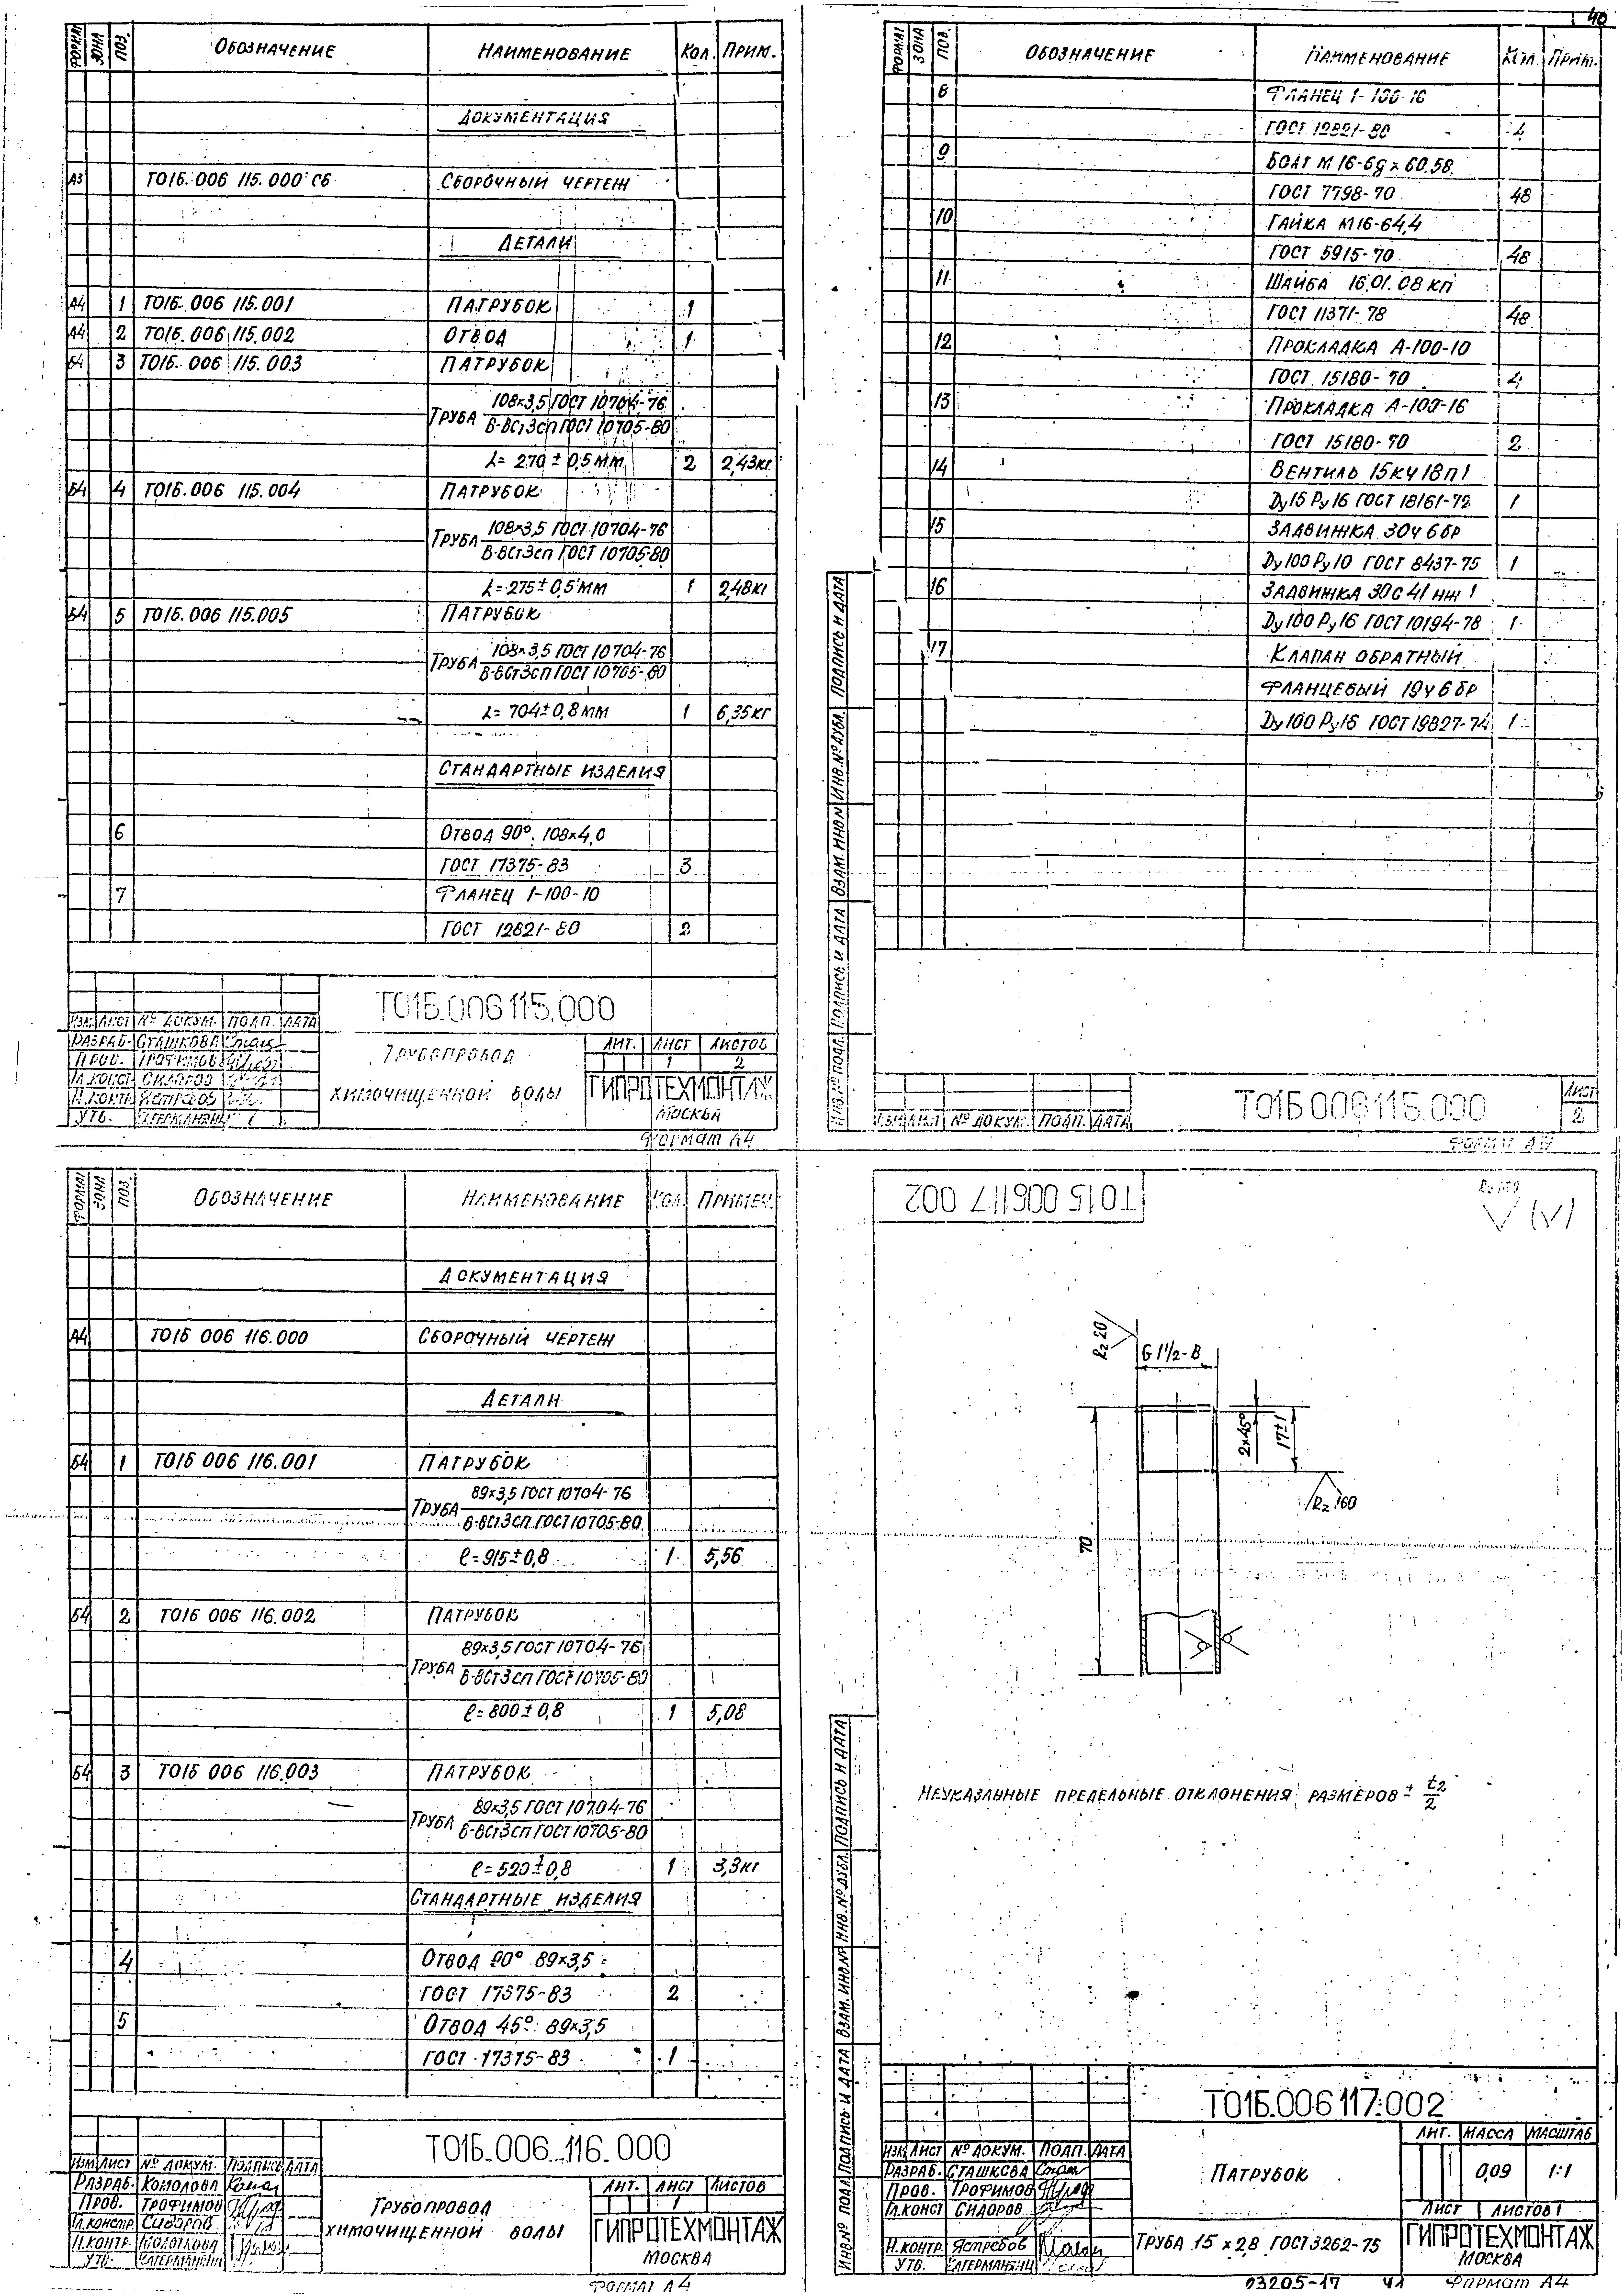 40
ФОРМАТ ЗОНА ПОЗ. ОБОЗНАЧЕНИЕ НАИМЕНОВАНИЕ КОЛ. ПРИМ.
ДОКУМЕНТАЦИЯ
А3 Т01Б.006 115.000 СБ СБОРОЧНЫЙ ЧЕРТЕЖ
ДЕТАЛИ
А4 1 Т01Б.006 115.001 ПАТРУБОК 1
А4 2 Т01Б.006 115.002 ОТВОД 1
Б4 3 Т01Б.006 115.003 ПАТРУБОК
ТРУБА 108×3,5 ГОСТ 10704-76
В-ВСт3сп ГОСТ 10705-80
L= 270 ± 0,5 ММ 2 2,43кг
Б4 4 Т01Б.006 115.004 ПАТРУБОК
ТРУБА 108×3,5 ГОСТ 10704-76
В-ВСт3сп ГОСТ 10705-80
L= 275 ± 0,5 ММ 1 2,48кг
Б4 5 Т01Б.006 115.005 ПАТРУБОК
ТРУБА 108×3,5 ГОСТ 10704-76
В-ВСт3сп ГОСТ 10705-80
L= 704 ± 0,8 ММ 1 6,35кг
СТАНДАРТНЫЕ ИЗДЕЛИЯ
6 ОТВОД 90° 108×4,0
ГОСТ 17375-83 3
7 ФЛАНЕЦ 1-100-10
ГОСТ 12821-80 2
Т01Б.006 115.000
ИЗМ. ЛИСТ № ДОКУМ. ПОДП. ДАТА
РАЗРАБ. СТАШКОВА
ПРОВ. ТРОФИМОВ
ГЛ.КОНСТ. СИДОРОВ
Н.КОНТР. ЯСТРЕБОВ
УТВ.
ТРУБОПРОВОД
ХИМОЧИЩЕННОЙ ВОДЫ
ЛИТ. ЛИСТ ЛИСТОВ
1 2
ГИПРОТЕХМОНТАЖ
МОСКВА
ФОРМАТ А4
ФОРМАТ ЗОНА ПОЗ. ОБОЗНАЧЕНИЕ НАИМЕНОВАНИЕ КОЛ. ПРИМ.
8 ФЛАНЕЦ 1-100-16
ГОСТ 12821-80 4
9 БОЛТ М16-6g×60.58
ГОСТ 7798-70 48
10 ГАЙКА М16-64,4
ГОСТ 5915-70 48
11 ШАЙБА 16.01.08 КП
ГОСТ 11371-78 48
12 ПРОКЛАДКА А-100-10
ГОСТ 15180-70 4
13 ПРОКЛАДКА А-100-16
ГОСТ 15180-70 2
14 ВЕНТИЛЬ 15кч18п1
Ду15 Ру16 ГОСТ 18161-72 1
15 ЗАДВИЖКА 30ч6бр
Ду100 Ру10 ГОСТ 8437-75 1
16 ЗАДВИЖКА 30с41нж1
Ду100 Ру16 ГОСТ 10194-78 1
17 КЛАПАН ОБРАТНЫЙ
ФЛАНЦЕВЫЙ 19ч6бр
Ду100 Ру16 ГОСТ 19827-74 1
ИНВ.№ ПОДЛ. ПОДПИСЬ И ДАТА ВЗАМ. ИНВ.№ ИНВ.№ ДУБЛ. ПОДПИСЬ И ДАТА
ИЗМ ЛИСТ № ДОКУМ. ПОДП. ДАТА
Т01Б 006 115.000
ЛИСТ
2
ФОРМАТ А4
ФОРМАТ ЗОНА ПОЗ. ОБОЗНАЧЕНИЕ НАИМЕНОВАНИЕ КОЛ. ПРИМЕЧ.
ДОКУМЕНТАЦИЯ
А4 Т01Б 006 116.000 СБОРОЧНЫЙ ЧЕРТЕЖ
ДЕТАЛИ
Б4 1 Т01Б 006 116.001 ПАТРУБОК
ТРУБА 89×3,5 ГОСТ 10704-76
В-ВСт3сп ГОСТ 10705-80
ℓ=915±0,8 1 5,56
Б4 2 Т01Б 006 116.002 ПАТРУБОК
ТРУБА 89×3,5 ГОСТ 10704-76
В-ВСт3сп ГОСТ 10705-80
ℓ=800±0,8 1 5,08
Б4 3 Т01Б 006 116.003 ПАТРУБОК
ТРУБА 89×3,5 ГОСТ 10704-76
В-ВСт3сп ГОСТ 10705-80
ℓ=520±0,8 1 3,3кг
СТАНДАРТНЫЕ ИЗДЕЛИЯ
4 ОТВОД 90° 89×3,5
ГОСТ 17375-83 2
5 ОТВОД 45° 89×3,5
ГОСТ 17375-83 1
Т01Б.006.116.000
ИЗМ ЛИСТ № ДОКУМ. ПОДПИСЬ ДАТА
РАЗРАБ. КОМОЛОВА
ПРОВ. ТРОФИМОВ
ГЛ.КОНСТР. СИДОРОВ
Н.КОНТР. МОЛОТКОВА
УТВ.
ТРУБОПРОВОД
ХИМОЧИЩЕННОЙ ВОДЫ
ЛИТ. ЛИСТ ЛИСТОВ
1
ГИПРОТЕХМОНТАЖ
МОСКВА
ФОРМАТ А4
Т01Б 006117 002
Rz 20
G 1½-В
2×45°
17±1
Rz 160
70
НЕУКАЗАННЫЕ ПРЕДЕЛЬНЫЕ ОТКЛОНЕНИЯ РАЗМЕРОВ ± t2/2
ИНВ.№ ПОДЛ ПОДПИСЬ И ДАТА ВЗАМ. ИНВ.№ ИНВ.№ ДУБЛ. ПОДПИСЬ И ДАТА
Т01Б.006 117.002
ИЗМ ЛИСТ № ДОКУМ. ПОДП. ДАТА
РАЗРАБ. СТАШКОВА
ПРОВ. ТРОФИМОВ
ГЛ.КОНСТ СИДОРОВ
Н.КОНТР. ЯСТРЕБОВ
УТВ.
ПАТРУБОК
ЛИТ. МАССА МАСШТАБ
0,09 1:1
ЛИСТ ЛИСТОВ 1
ТРУБА 15×2,8 ГОСТ 3262-75
ГИПРОТЕХМОНТАЖ
МОСКВА
03205-17 41 ФОРМАТ А4